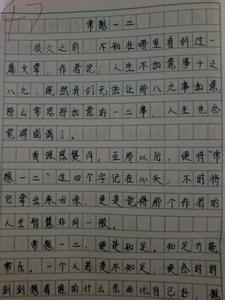 47
常想一二
很久之前，不知在哪里看到过一
篇文章，作者说，人生不如意事十之
八九，既然我们无法让那八九事如意，
那么常想那如意的一二事，人生也会
觉得圆满了。
我深感赞同，至那以后，便将“常
想一二”这四个字记在心头，不时将
它拿出来回味，更是觉得那个作者的
人生智慧非同一般。
常想一二，便是知足，知足方能
常乐。一个人若是不知足，便会时时
刻刻想着